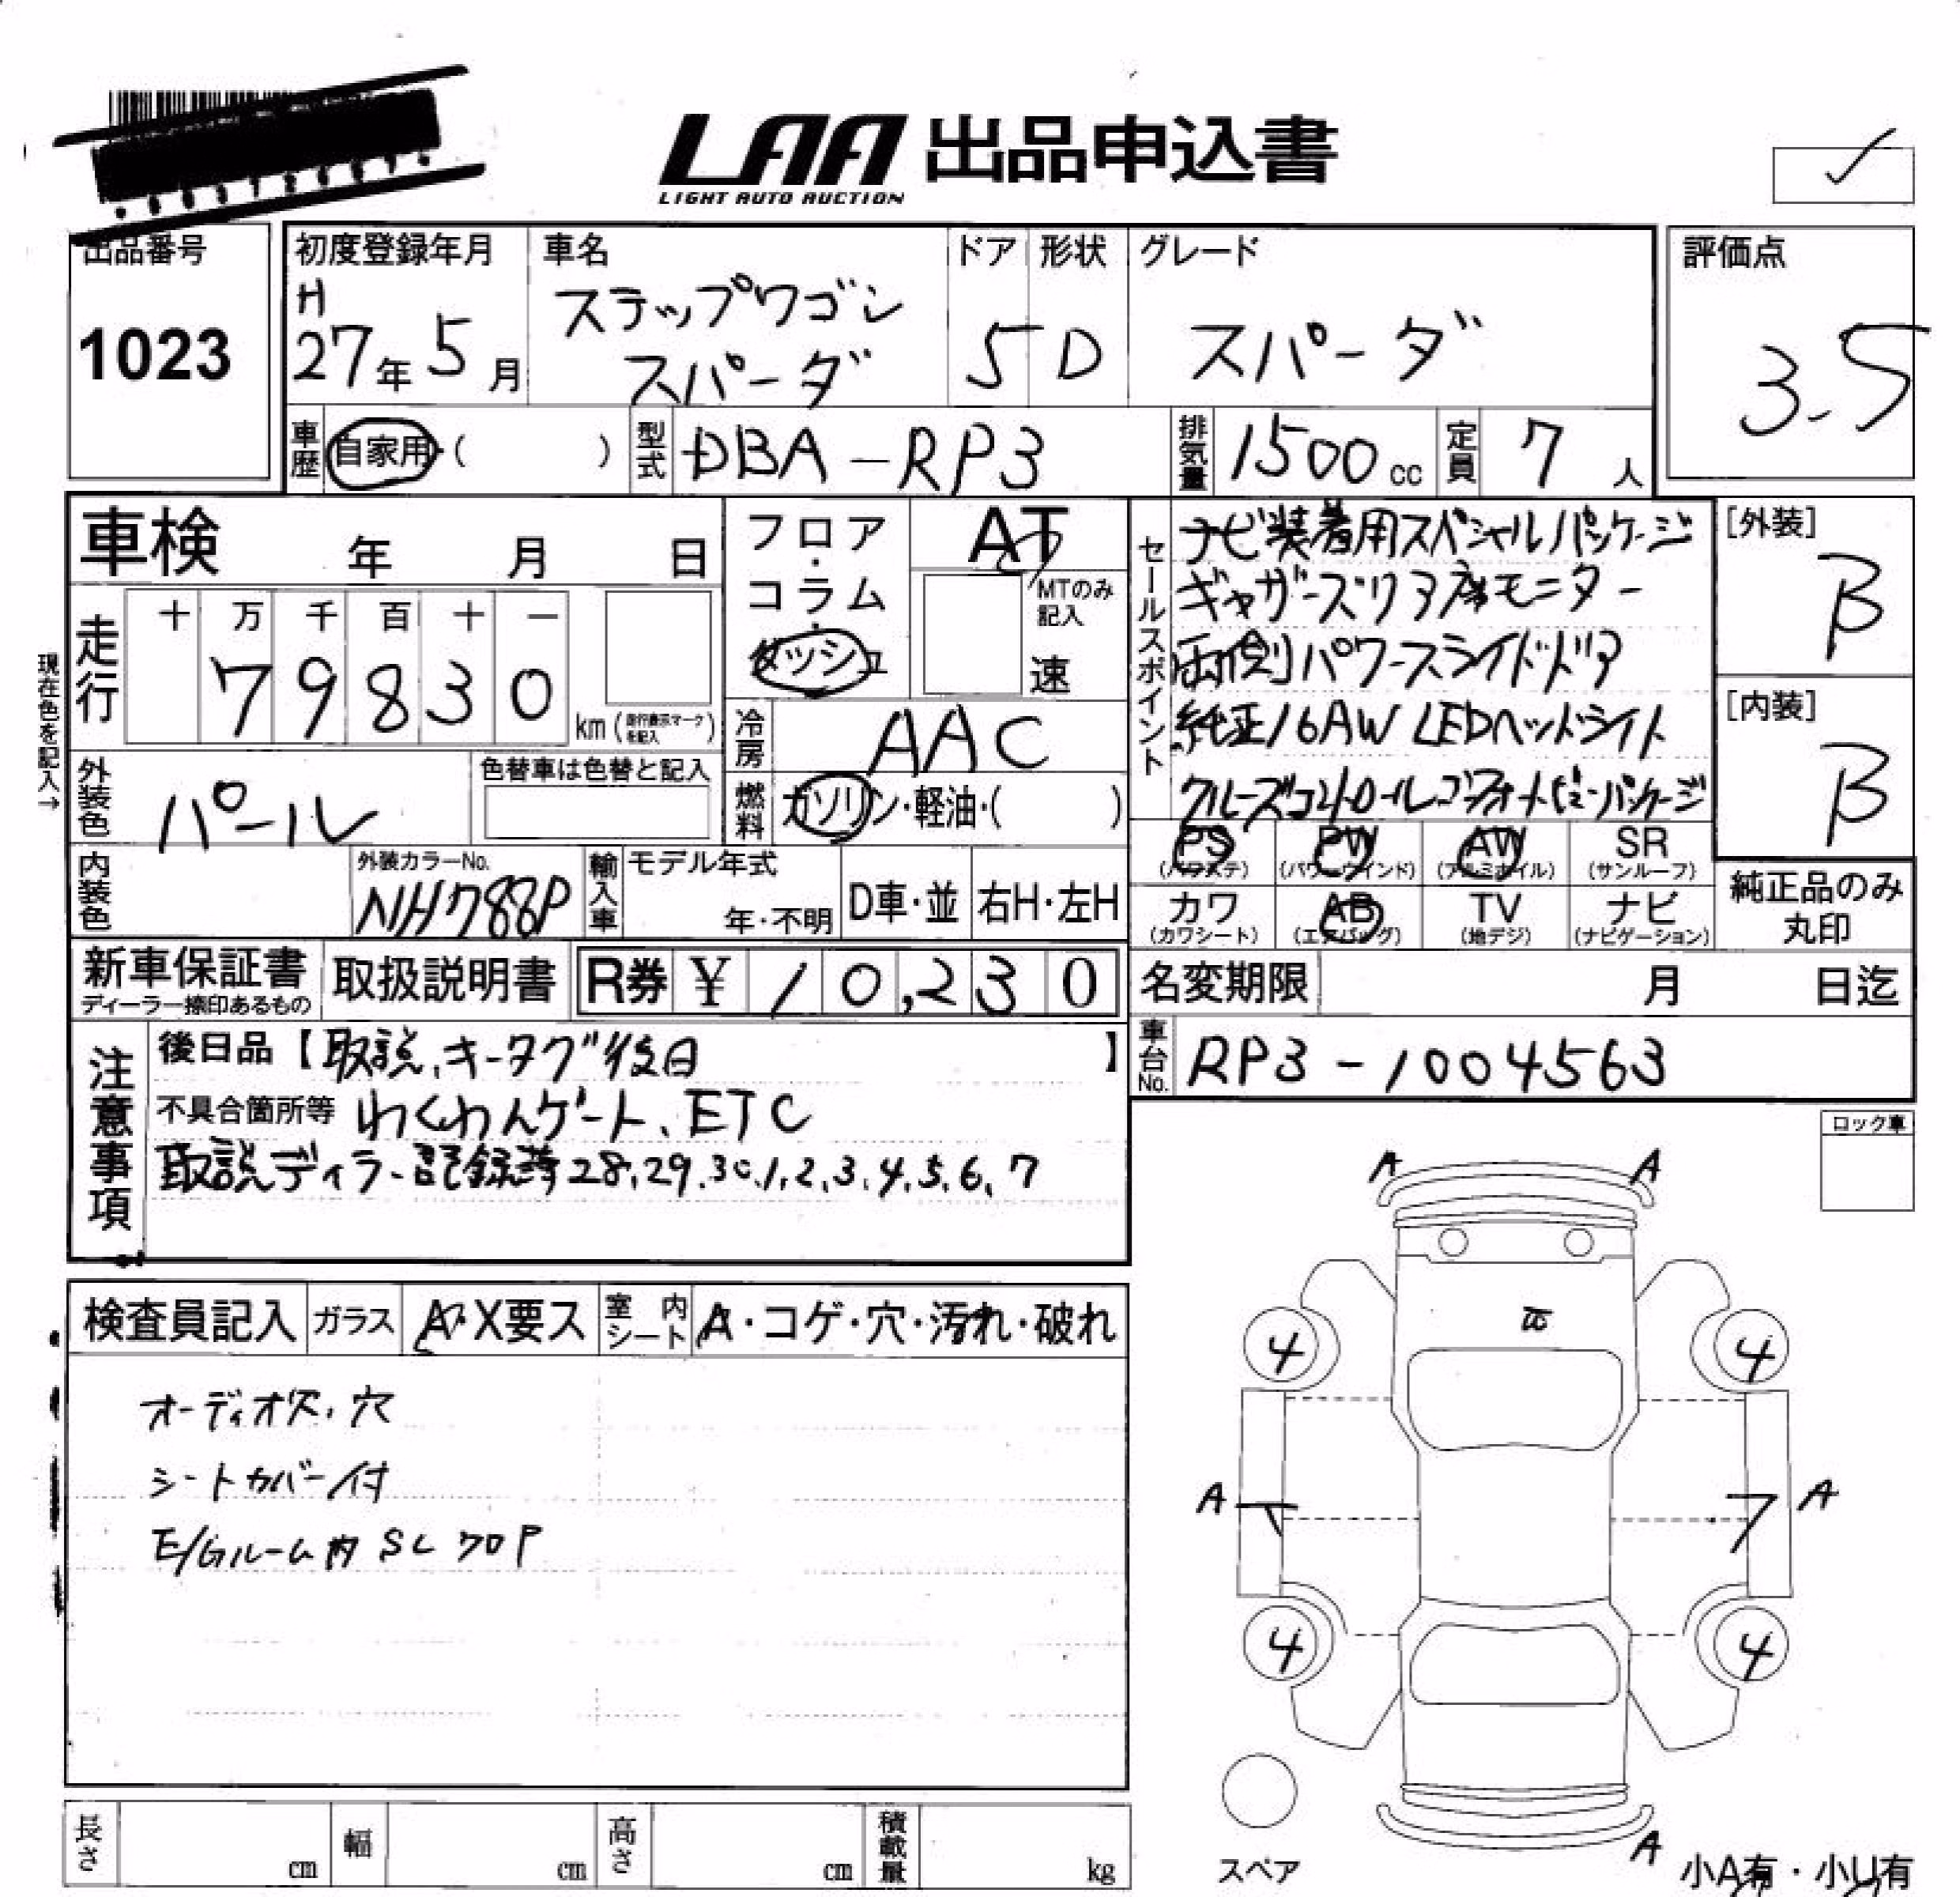 LAA 出品申込書
LIGHT AUTO AUCTION
出品番号
1023
初度登録年月
H
27年5月
車名
ステップワゴン
スパーダ
ドア
5
形状
D
グレード
スパーダ
評価点
3.5
車歴
自家用・( )
型式
DBA-RP3
排気量
1500cc
定員
7人
車検 年 月 日
現在色を記入→
走行
十 万 千 百 十 一
7 9 8 3 0
km(走行表示マークを記入)
フロア・コラム・ダッシュ
AT
MTのみ記入
速
冷房
AAC
燃料
ガソリン・軽油・( )
セールスポイント
ナビ装着用スペシャルパッケージ
ギャザーズリア席モニター
両側パワースライドドア
純正16AW LEDヘッドライト
クルーズコントロール コンフォートビューパッケージ
[外装]
B
[内装]
B
外装色
パール
色替車は色替と記入
内装色
外装カラーNo.
NH788P
輸入車
モデル年式
年・不明
D車・並
右H・左H
PS
(パワステ)
PW
(パワーウインド)
AW
(アルミホイル)
SR
(サンルーフ)
カワ
(カワシート)
AB
(エアバッグ)
TV
(地デジ)
ナビ
(ナビゲーション)
純正品のみ
丸印
新車保証書
ディーラー捺印あるもの
取扱説明書
R券 ¥ 10,230
名変期限 月 日迄
車台No.
RP3-1004563
注意事項
後日品【取説、キータグ後日】
不具合箇所等 わくわくゲート、ETC
取説ディラー記録簿28,29,30,1,2,3,4,5,6,7
ロック車
検査員記入
ガラス
A・X要ス
室内シート
A・コゲ・穴・汚れ・破れ
オーディオ欠、穴
シートカバー付
E/Gルーム内 SL
A A
4 4
A A
4 4
A
スペア
小A有・小U有
長さ cm
幅 cm
高さ cm
積載量 kg